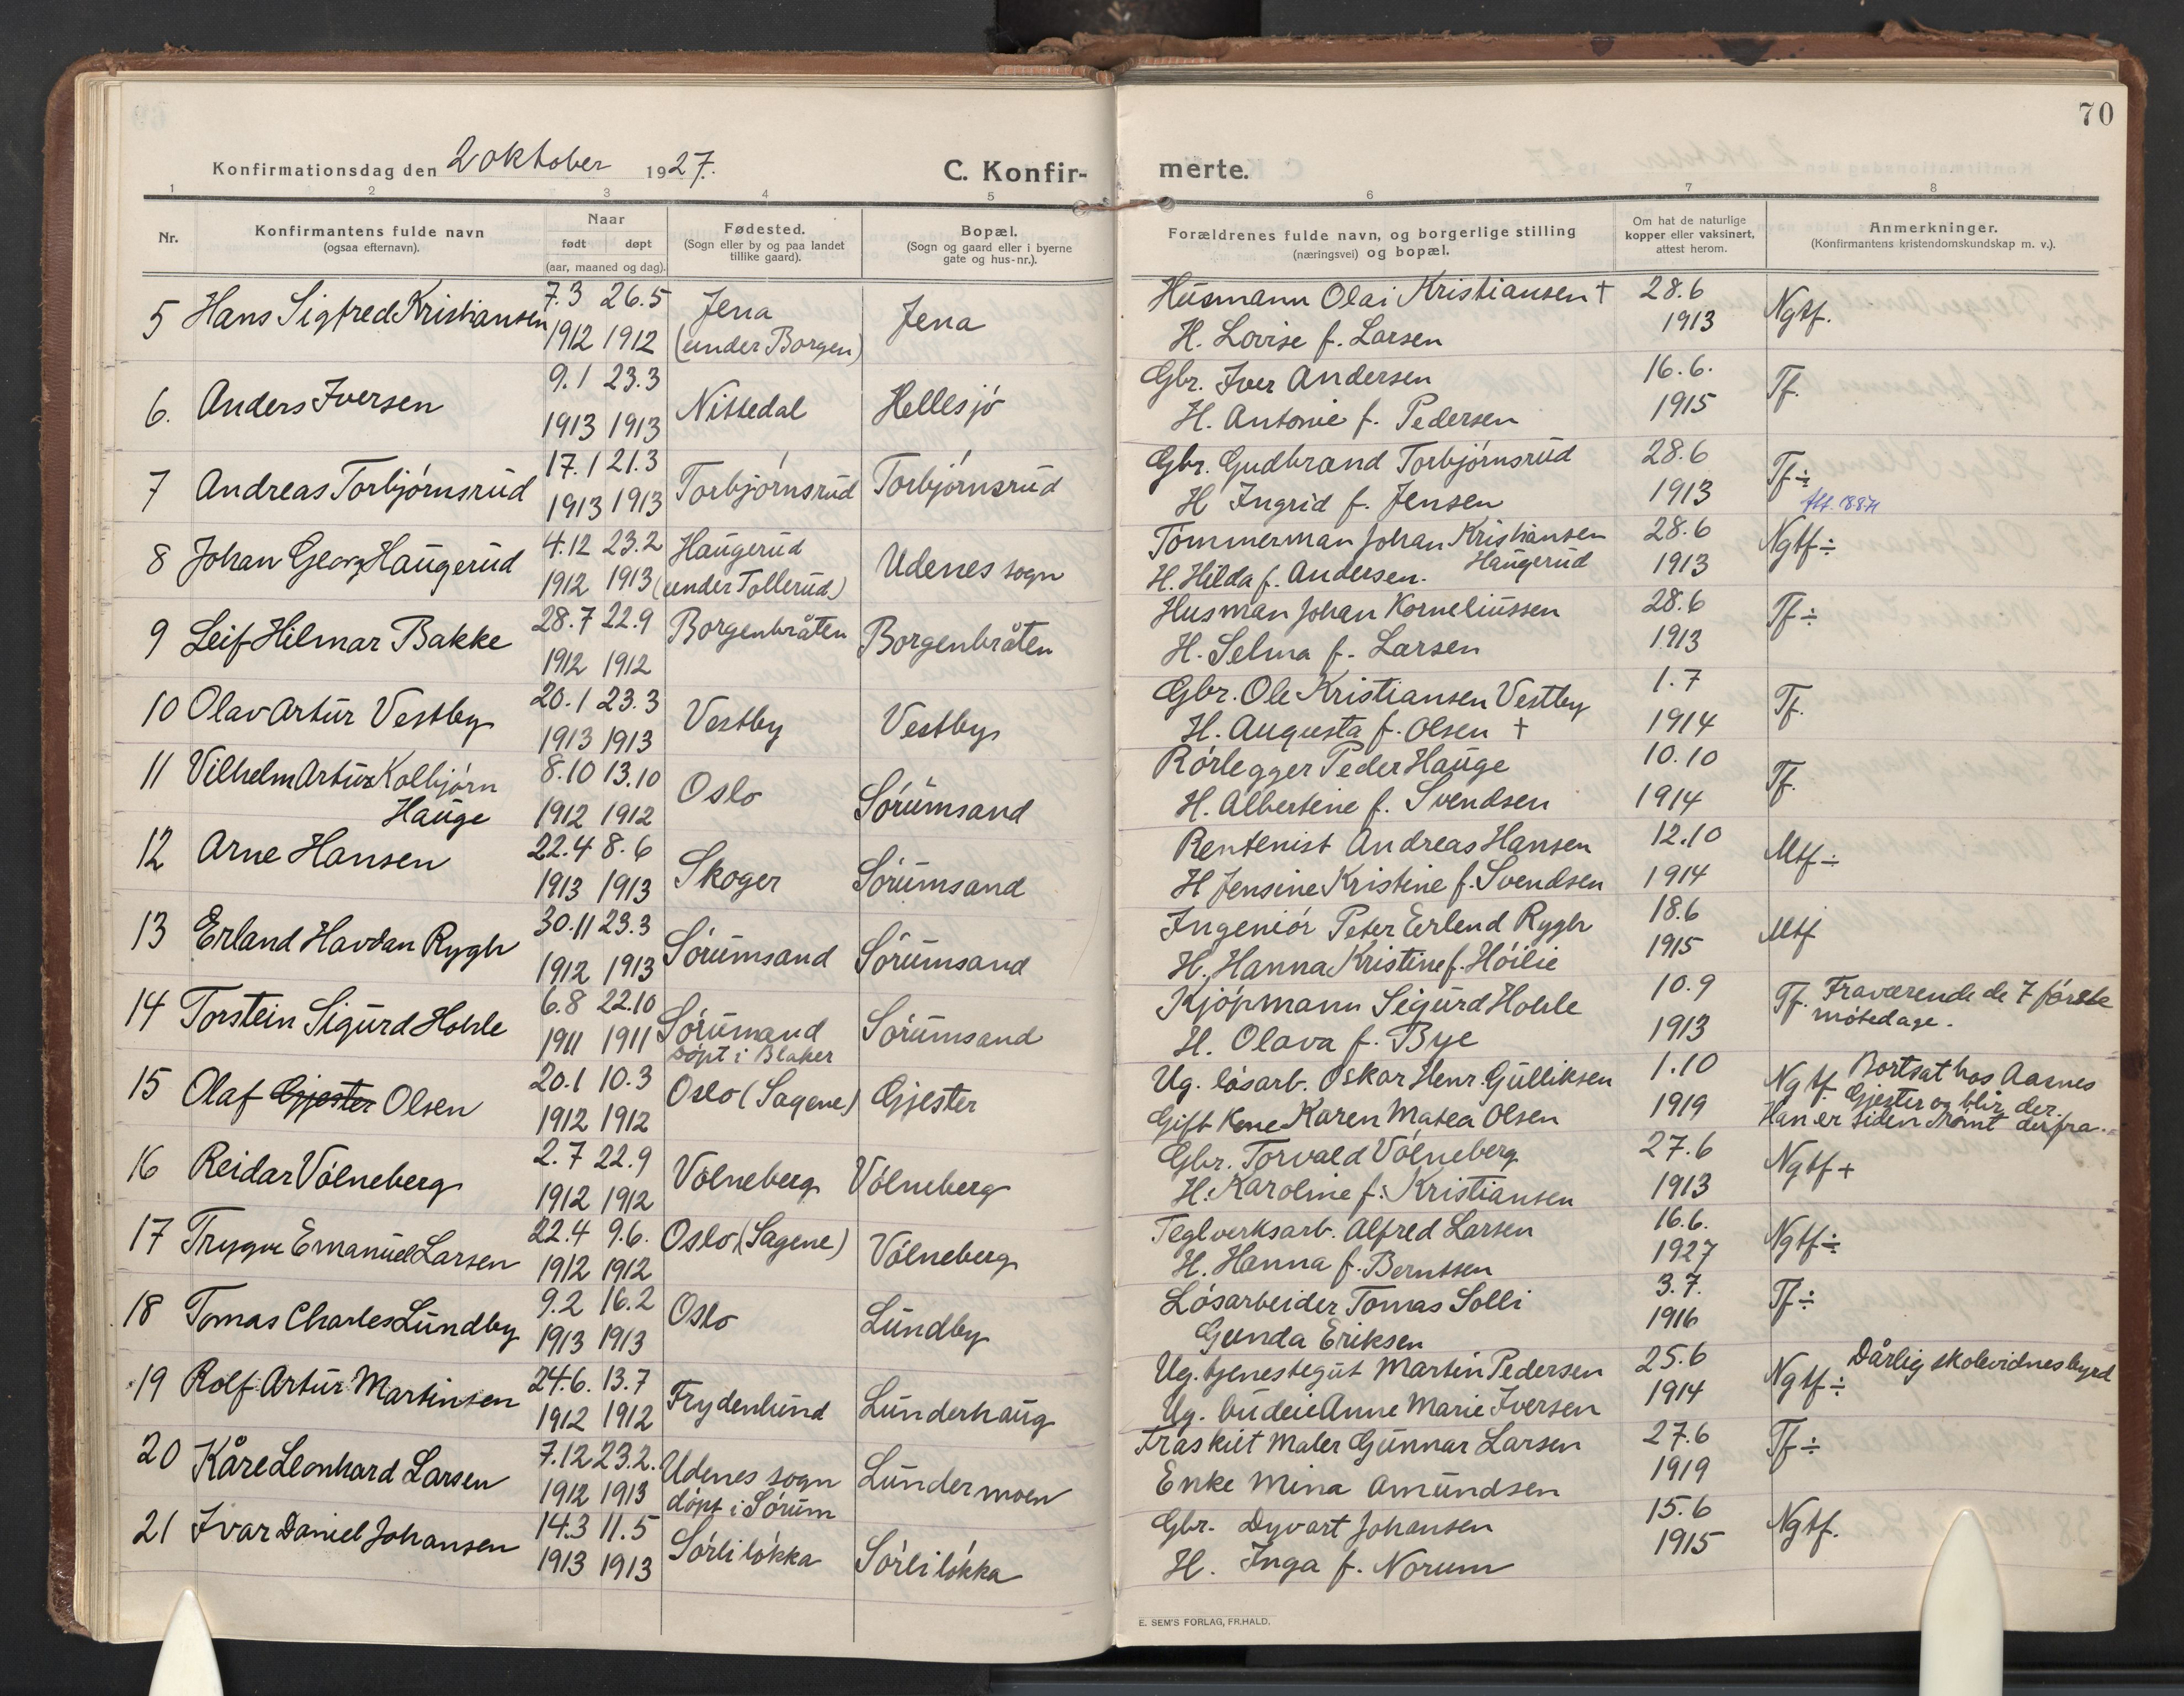 70
Konfirmationsdag den 2 oktober 1927.
C. Konfir- merte.
1 2 3 4 5 6 7 8
Nr.
Konfirmantens fulde navn
(ogsaa efternavn).
Naar
født døpt
(aar, maaned og dag).
Fødested.
(Sogn eller by og paa landet
tillike gaard).
Bopæl.
(Sogn og gaard eller i byerne
gate og hus-nr.).
Forældrenes fulde navn, og borgerlige stilling
(næringsvei) og bopæl.
Om hat de naturlige
kopper eller vaksinert,
attest herom.
Anmerkninger.
(Konfirmantens kristendomskundskap m. v.).
5 Hans Sigfred Kristiansen 7.3 26.5 Jena Jena Husmann Olai Kristiansen † 28.6 Ngtf.
1912 1912 (under Borgen) H. Lovise f. Larsen 1913
6. Anders Iversen 9.1 23.3 Nittedal Hellesjó Gbr. Iver Andersen 16.6. Tf.
1913 1913 H. Antonie f. Pedersen 1915
7 Andreas Torbjórnsrud 17.1 21.3 Torbjórnsrud Torbjórnsrud Gbr. Gudbrand Torbjórnsrud 28.6 Tf÷
1913 1913 H Ingrid f. Jensen 1913
8 Johan Georg Haugerud 4.12 23.2 Haugerud Udenes sogn Tómmerman Johan Kristiansen 28.6 Ngtf÷
Haugerud
1912 1913 (under Tollerud) H. Hilda f. Andersen. 1913
9 Leif Hilmar Bakke 28.7 22.9 Borgenbråten Borgenbråten Husman Johan Korneliussen 28.6 Tf÷
1912 1912 H. Selma f. Larsen 1913
10 Olav Artur Vestby 20.1 23.3 Vestby Vestby Gbr. Ole Kristiansen Vestby 1.7 Tf.
1913 1913 H. Augusta f. Olsen † 1914
11 Vilhelm Artur Kolbjórn 8.10 13.10 Oslo Sórumsand Rórlegger Peder Hauge 10.10 Tf.
Hauge 1912 1912 H. Albertine f. Svendsen 1914
12 Arne Hansen 22.4 8.6 Skoger Sórumsand Rentenist Andreas Hansen 12.10 Mtf÷
1913 1913 H Jensine Kristine f. Svendsen 1914
13 Erland Havdan Rygh 30.11 23.3 Sórumsand Sórumsand Ingeniór Peter Erlend Rygh 18.6 Mtf
1912 1913 H. Hanna Kristine f. Hóilie 1915
14 Torstein Sigurd Hohle 6.8 22.10 Sórumand Sórumsand Kjópmann Sigurd Hohle 10.9 Tf. Fraværende de 7 fórste
1911 1911 Dópt i Blaker H. Olava f. Bye 1913 mótedage.
15 Olaf Gjester Olsen 20.1 10.3 Oslo (Sagene) Gjester Ug. lósarb. Oskar Henr. Gulliksen 1.10 Ngtf Bortsat hos Aasnes
1912 1912 Gift Kone Karen Matea Olsen 1919 Gjester og blir der.
Han er siden rómt derfra.
16 Reidar Vólneberg 2.7 22.9 Vólneberg Vólneberg Gbr. Torvald Vólneberg 27.6 Ngtf+
1912 1912 H. Karoline f. Kristiansen 1913
17 Trygve Emanuel Larsen 22.4 9.6. Oslo (Sagene) Vólneberg Teglverksarb. Alfred Larsen 16.6. Ngtf÷
1912 1912 H. Hanna f. Berntsen 1927
18 Tomas Charles Lundby 9.2 16.2 Oslo Lundby Lósarbeider Tomas Solli 3.7. Tf÷
1913 1913 Gunda Eriksen 1916
19 Rolf Artur Martinsen 24.6. 13.7 Frydenlund Lunderhaug Ug. tjenestegut Martin Pedersen 25.6 Ngtf÷ Dårlig skolevidnesbyrd
1912 1912 Ug. budeie Anne Marie Iversen 1914
20 Kåre Leonhard Larsen 7.12 23.2. Udenes sogn Lundermoen Fraskilt Maler Gunnar Larsen 27.6 Tf÷
1912 1913 dópt i Sórum Enke Mina Amundsen 1919
21 Ivar Daniel Johansen 14.3 11.5 Sórlilókka Sórlilókka Gbr. Dyvart Johansen 15.6 Ngtf.
1913 1913 H. Inga f. Norum 1915
E. SEM'S FORLAG, FR.HALD.